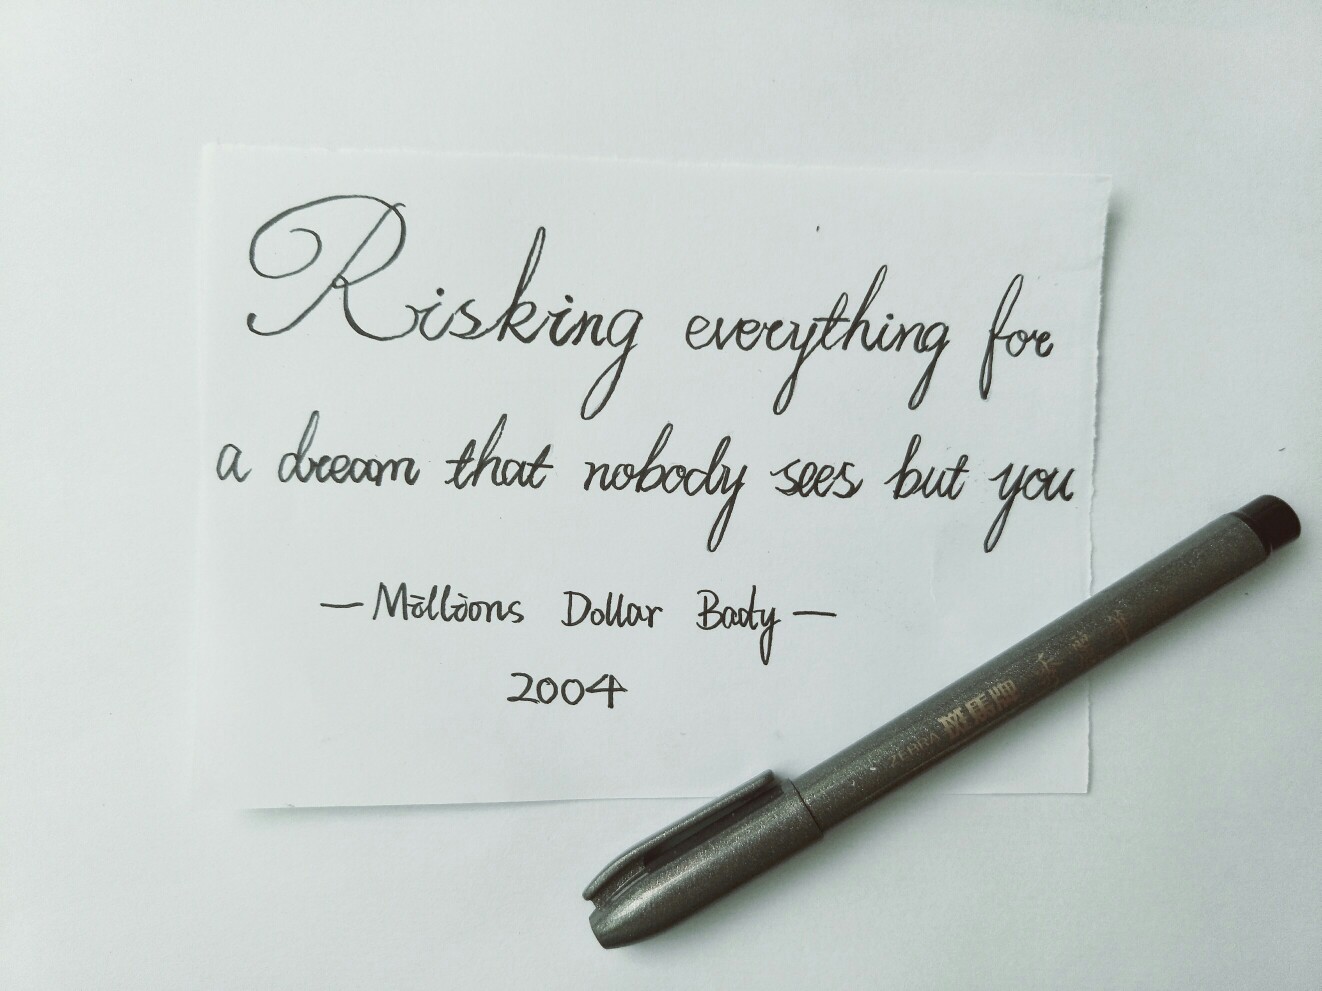 Risking everything for
a dream that nobody sees but you
— Millions Dollar Bady —
2004
ZEBRA 斑馬牌